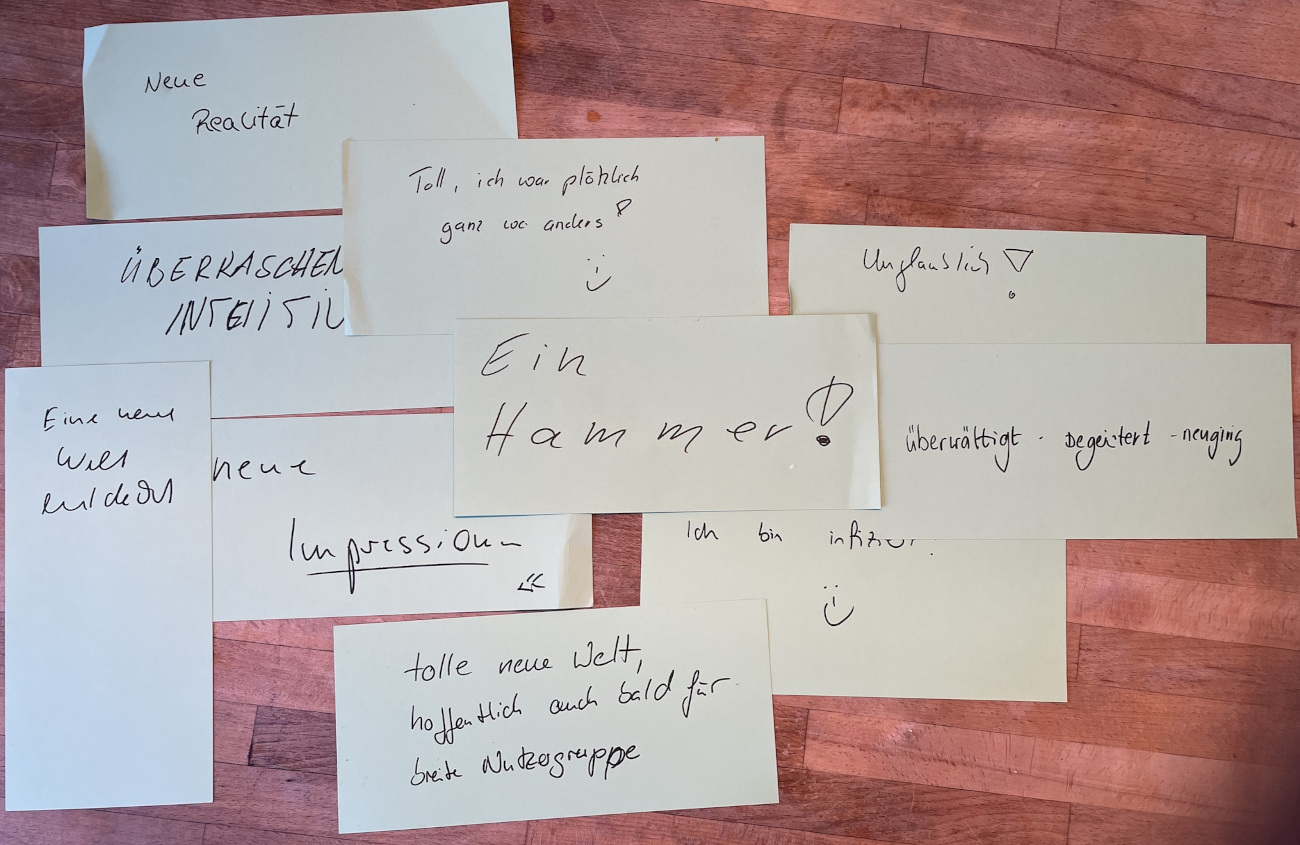 Neue
Realität
Toll, ich war plötzlich
ganz wo anders!
ÜBERRASCHEN
INTENSIV
Unglaublich!
Ein
Hammer!
Eine neue
Welt
entdeckt
neue
Impressionen
überwältigt - begeistert - neugirig
Ich bin infiziert.
tolle neue Welt,
hoffentlich auch bald für
breite Nutzergruppe